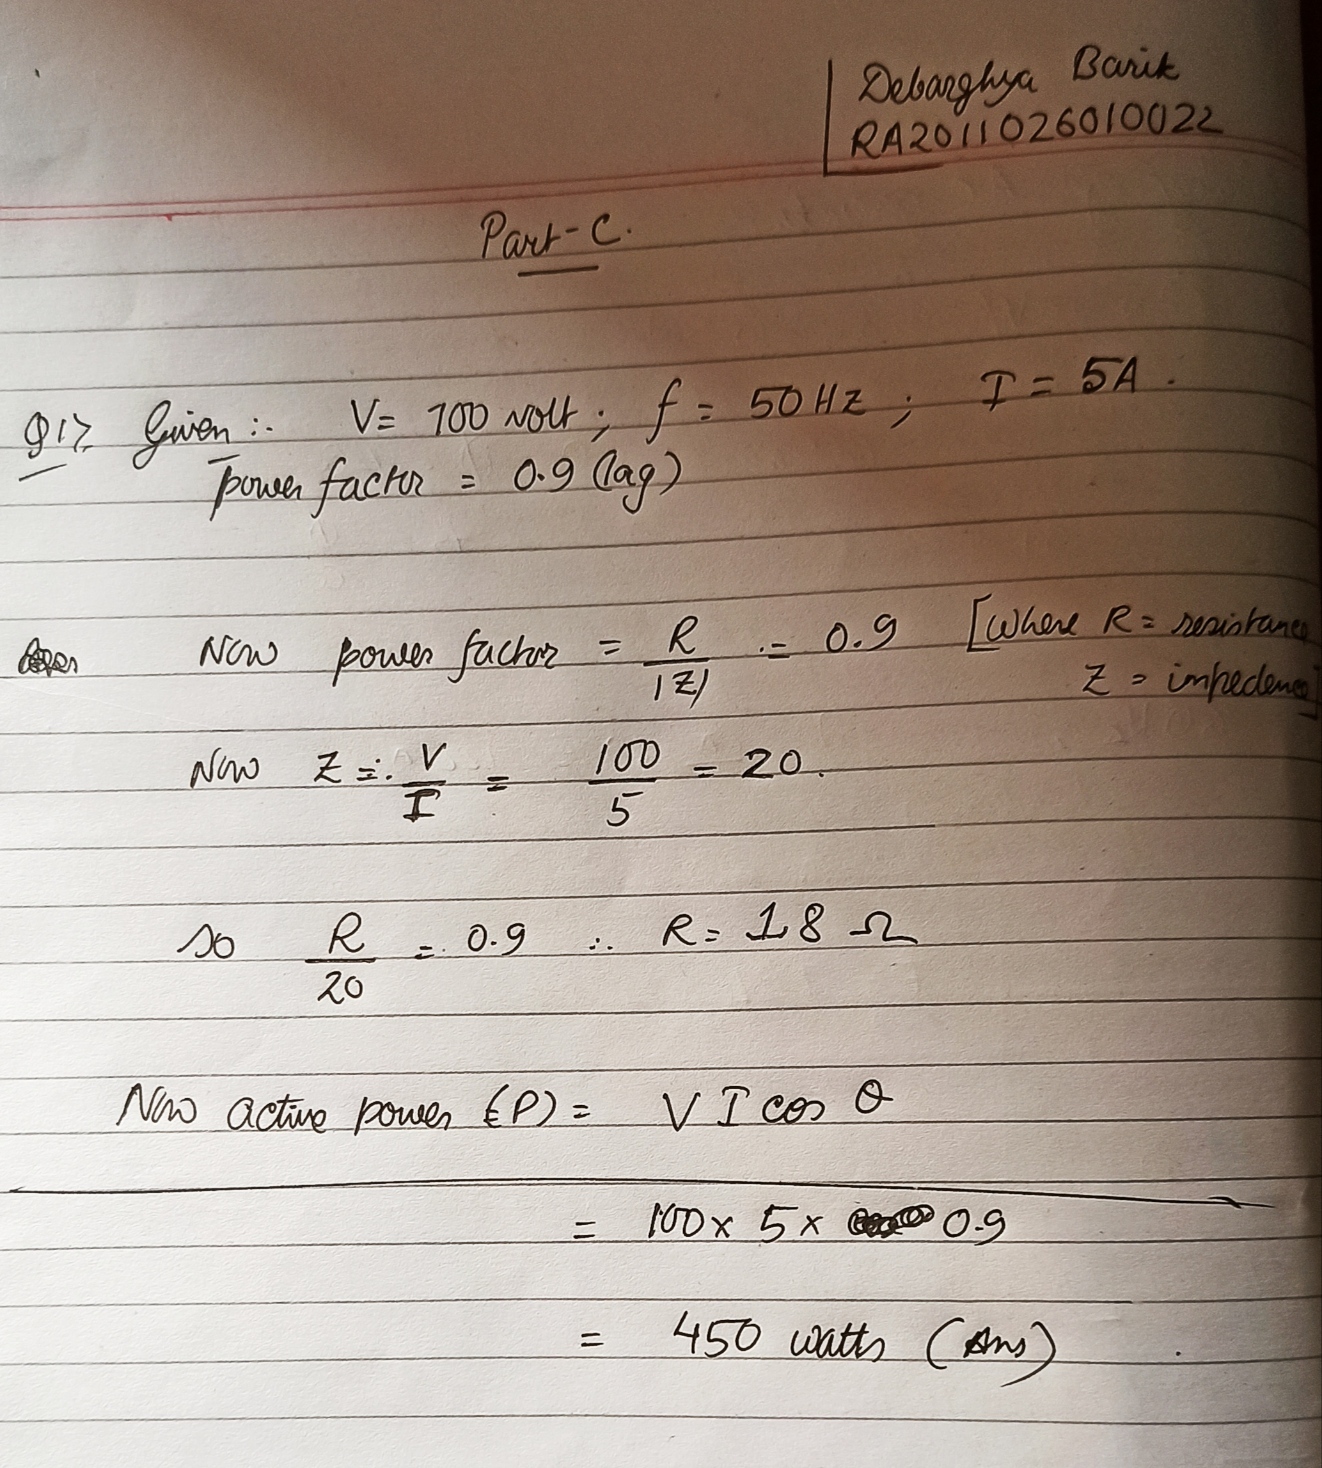 Debarghya Barik
RA2011026010022
Part-C.
Q1> Given :- V = 100 volt ; f = 50 Hz ; I = 5A .
power factor = 0.9 (lag)
Now power factor = R/|Z| = 0.9 [Where R = resistance
Z = impedence]
Now Z = V/I = 100/5 = 20.
so R/20 = 0.9 ∴ R = 18 Ω
Now active power (P) = V I cos θ
= 100 x 5 x 0.9
= 450 watts (Ans)